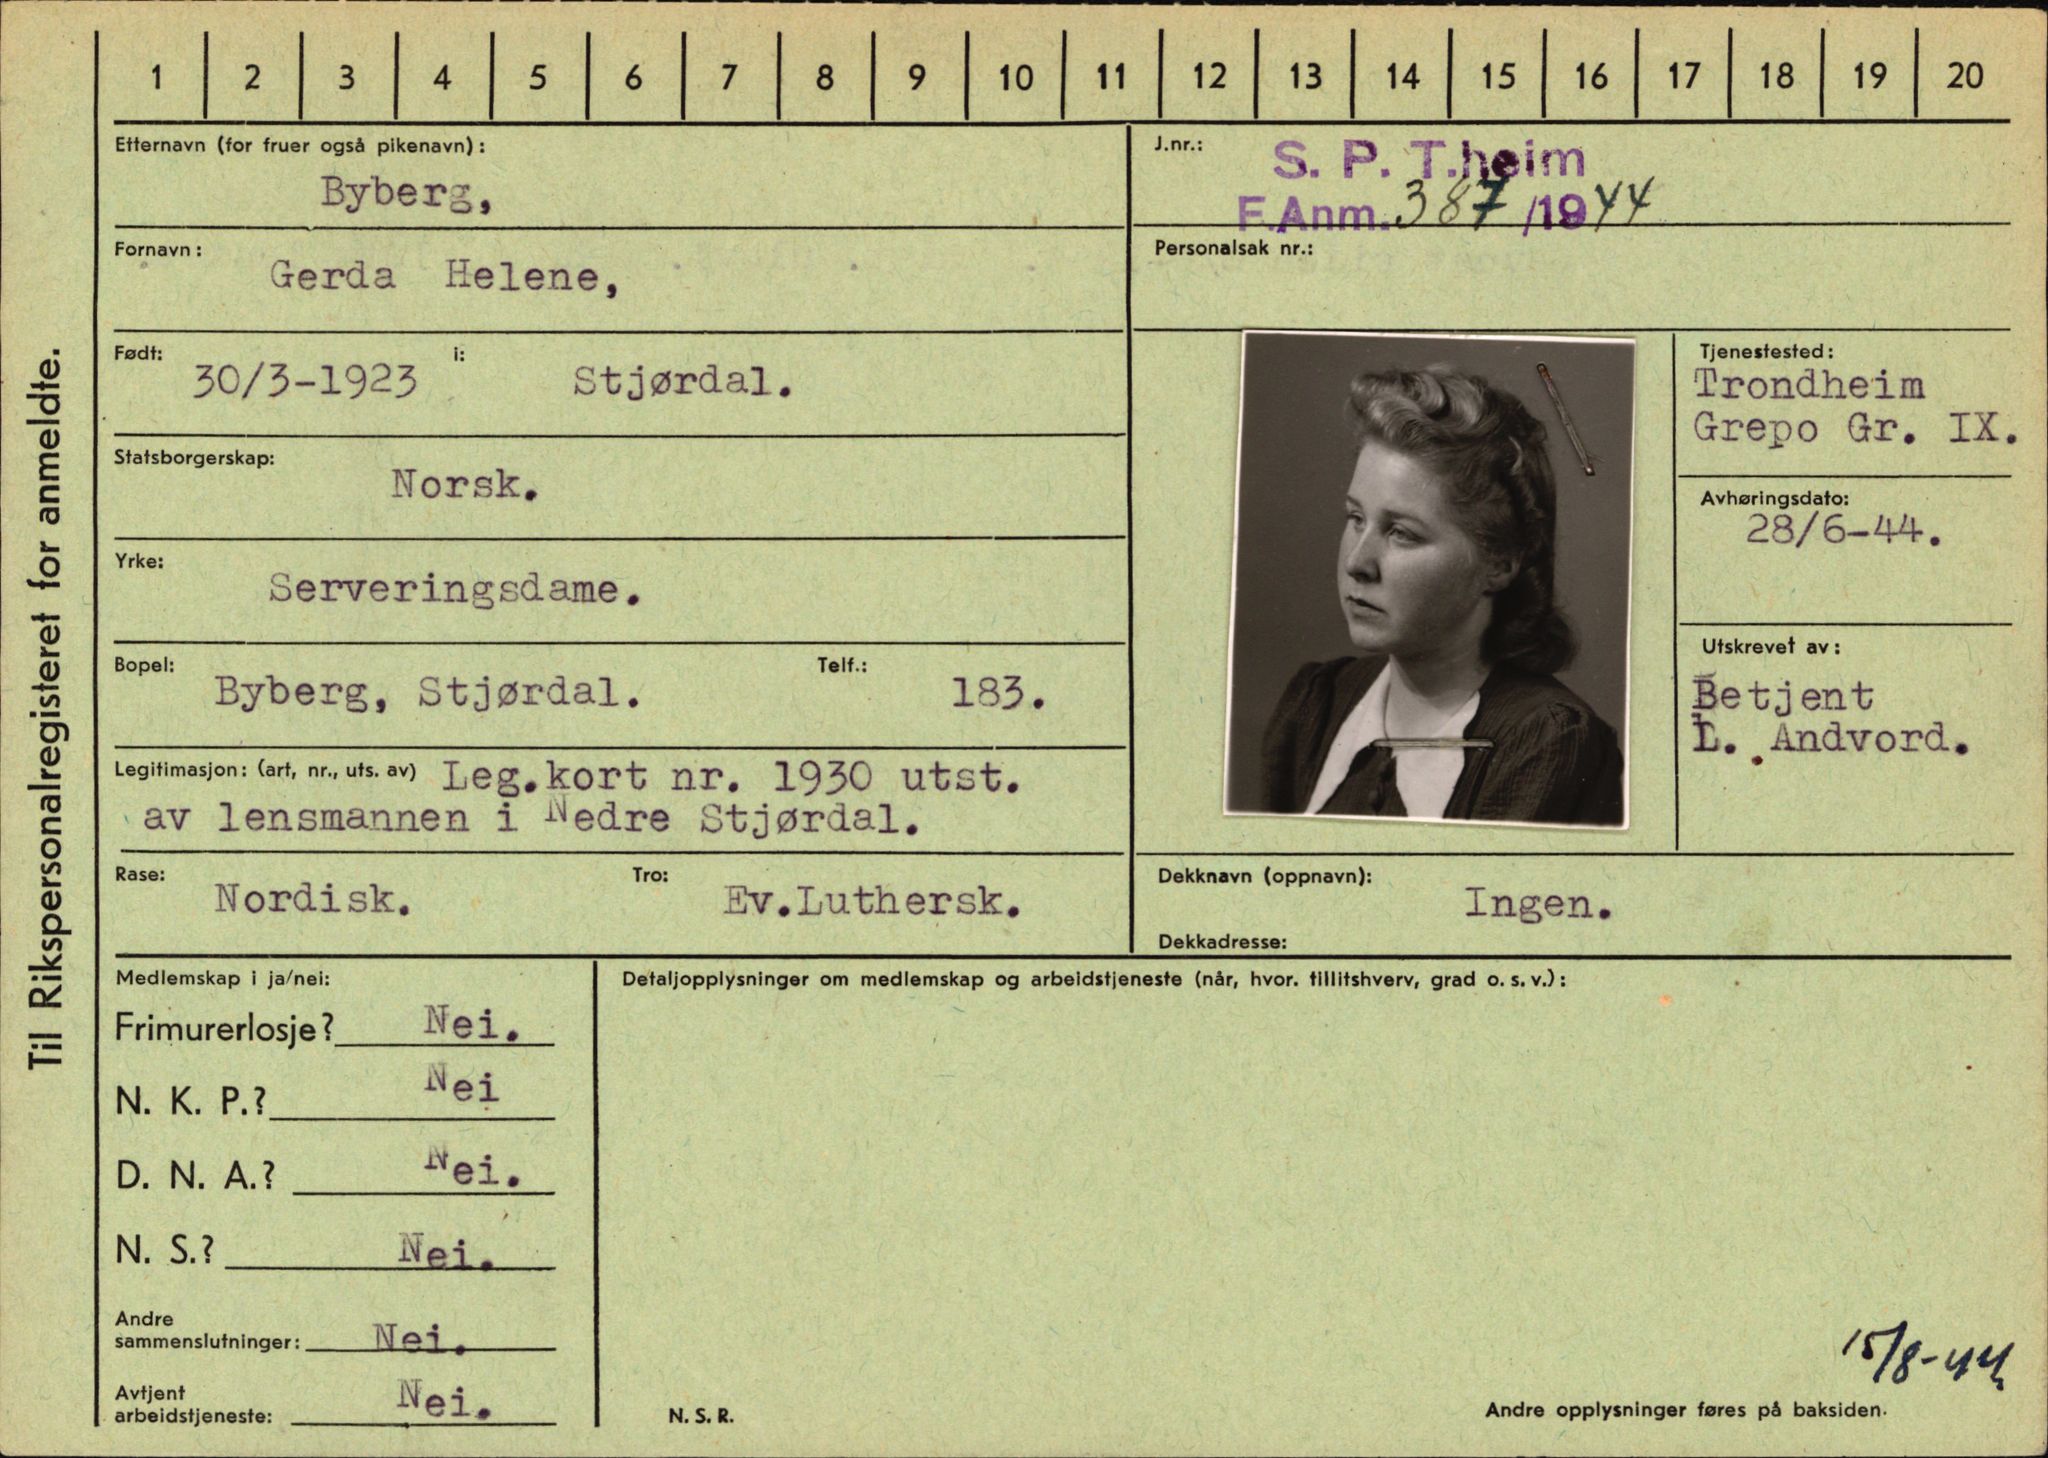 1 2 3 4 5 6 7 8 9 10 11 12 13 14 15 16 17 18 19 20
Til Rikspersonalregisteret for anmeldte.
Etternavn (for fruer også pikenavn):
Byberg,
Fornavn:
Gerda Helene,
Født: 30/3-1923 i: Stjørdal.
Statsborgerskap:
Norsk.
Yrke:
Serveringsdame.
Bopel: Byberg, Stjørdal. Telf.: 183.
Legitimasjon: (art, nr., uts. av) Leg.kort nr. 1930 utst.
av lensmannen i Nedre Stjørdal.
Rase: Nordisk. Tro: Ev.Luthersk.
J.nr.: S. P. T.heim
F.Anm. 387/1944
Personalsak nr.:
Tjenestested:
Trondheim
Grepo Gr. IX.
Avhøringsdato:
28/6-44.
Utskrevet av:
Betjent
L. Andvord.
Dekknavn (oppnavn): Ingen.
Dekkadresse:
Medlemskap i ja/nei:
Frimurerlosje? Nei.
N. K. P.? Nei
D. N. A.? Nei.
N. S.? Nei.
Andre
sammenslutninger: Nei.
Avtjent
arbeidstjeneste: Nei.
Detaljopplysninger om medlemskap og arbeidstjeneste (når, hvor. tillitshverv, grad o. s. v.):
15/8-44
N. S. R.
Andre opplysninger føres på baksiden.